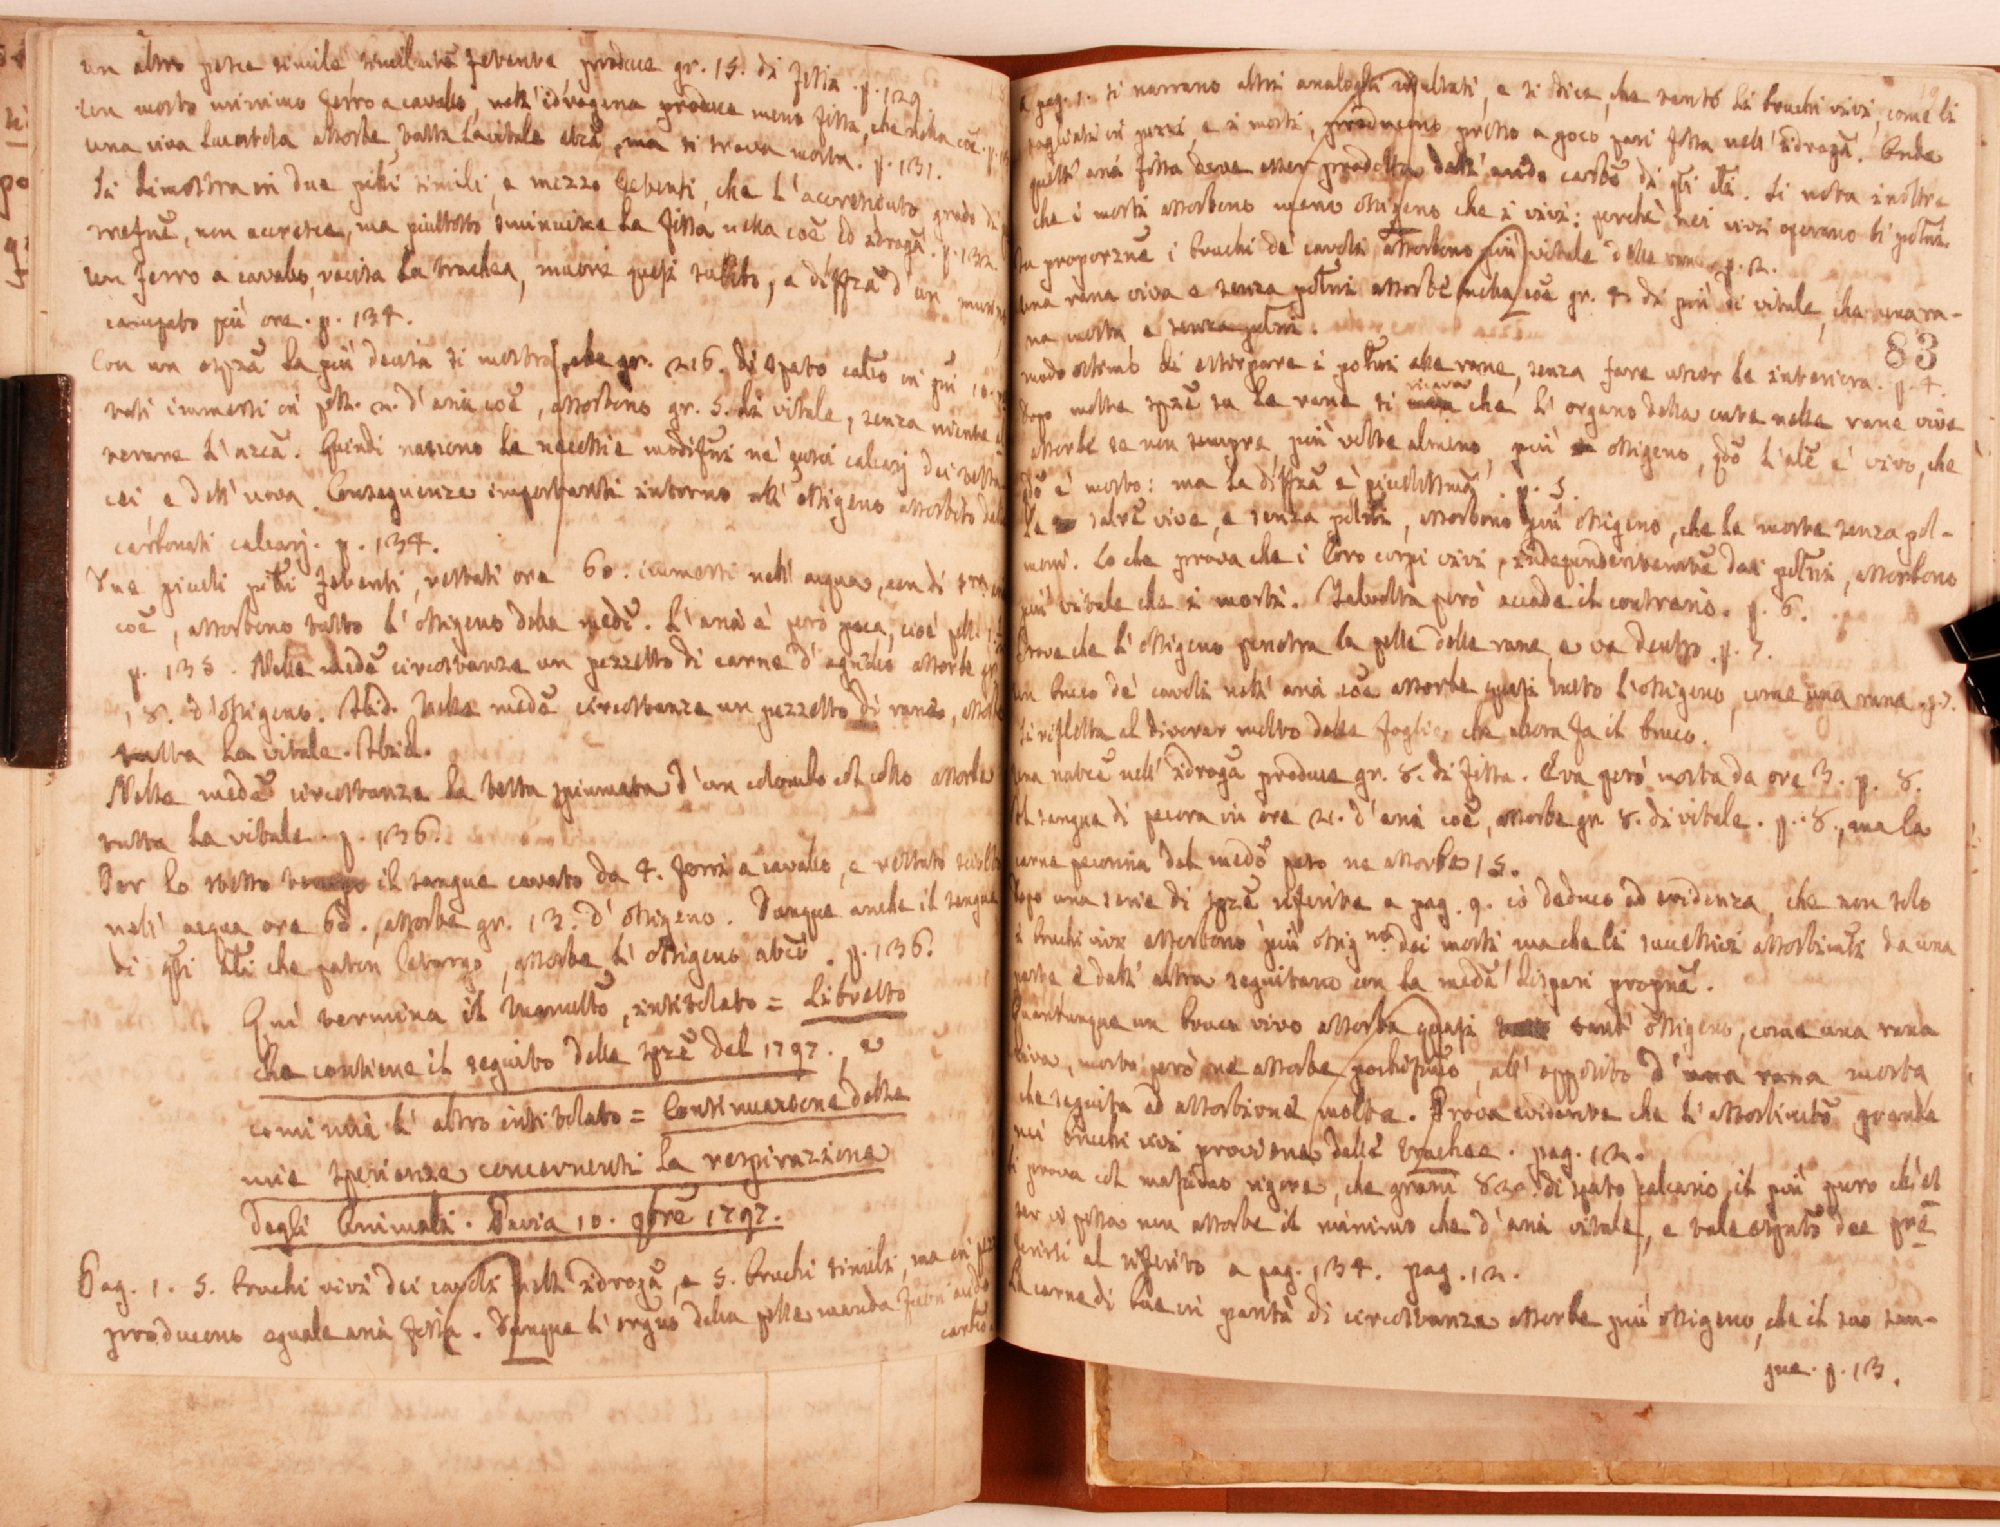 un altro pesce simile, similmte fetente produce gr. 15. di fissa. p. 129.
Un morto minimo ferro a cavallo, nell' idrogena produce meno fissa, che nella coẽ. p.
una viva lucertola assorbe tutta la vitale etcã, ma si trova morta. p. 131.
Si dimostra in due simili, e mezzo fetenti, che l' accresciuto grado di
non accresce, ma piuttosto diminuisce la fissa nella coẽ ed idrogã. p. 132.
Un ferro a cavallo, recisa la trachea, muore quasi subito, a diffzã d' un
p. 134.
Con un spzã la più decisa si mostra, che gr. 216. di spato calcõ in più
immersi in poll. 2. d' aria coẽ, assorbono gr. 5. di vitale, senza niente
Quindi nascono le necessarie né gusci calcarj dei testa-
cei, e dell' uova. Conseguenze importanti intorno all' ossigeno assorbito dai
carbonati calcarj. p. 134.
Due piccoli fetenti, restati ore 60. immersi nell' acqua, con di
coẽ, assorbono tutto l' ossigeno della medẽ. L' aria è però poca, cioè poll.
p. 135. Nelle medẽ circostanze un pezzetto di carne d' agnello assorbe gr.
18. d' ossigeno. Ibid. Nelle medẽ circostanze un pezzetto di rane, assorbe
tutta la vitale. Ibid.
Nelle medẽ circostanze la testa spiumata d' un colombo col collo assorbe
tutta la vitale. p. 136.
Per lo stesso il sangue cavato da 4. ferri a cavallo, e restato sciolto
nell' acqua ore 60., assorbe gr. 13. d' ossigeno. Dunque anche il sangue
di qsti alĩ che paton letargo, assorbe l' ossigeno abcũ. p. 136.
Quì termina il Manultõ, intitolato = Libretto
che contiene il seguito delle spzẽ del 1797., e
comincia l' altro intitolato = Continuazione delle
mie sperienze concernenti la respirazione
degli Animali. Pavia 10. 9bre 1797.
Pag. 1. 5. bruchi vivi dei cavoli nell' idrogã, e 5. bruchi simili, ma in pezzi
producono eguale aria fissa. Dunque l' orgno della pelle manda fuori acido
carbõ
A pag. 1. si narrano altri analoghi risultati, e si dice, che tanto li bruchi vivi, come li
tagliati in pezzi, e i morti, producono presso a poco pari fissa nell' idrogã. Onde
quest' aria fissa deve esser prodotta dall' acido carbõ di qsti alĩ. Si nota inoltre
che i morti assorbono meno ossigeno che i vivi: perchè nei vivi operano li polmñ.
In proporzne i bruchi de' cavoli assorbono più vitale delle rane. p. 2.
Una rana viva e senza polmni assorbe nella coẽ gr. 4. di più di vitale, che una ra-
na morta e senza polmni.
83
modo ottimõ di estirpare i polmni alle rane, senza fare uscir le interiora. p. 4.
Dopo molte spzẽ su le rane si ricava che l' organo della cute nelle rane vive
assorbe se non sempre, più volte almeno, più ossigeno, qdõ l' alẽ è vivo, che
qdõ è morto: ma la diffzã è piccolissimã. p. 5.
Le salrẽ vive, e senza polmni, assorbono più ossigeno, che le morte senza pol-
moni. Lo che prova che i loro corpi vivi, independentemtẽ dai polmni, assorbono
più vitale che i morti. Talvolta però accade il contrario. p. 6.
Prove che l' ossigeno penetra la pelle delle rane, e va dentro. p. 7.
Un bruco de' cavoli nell' aria coẽ assorbe quasi tutto l' ossigeno, come una rana. p. 7.
Si rifletta al divorar molto delle foglie, che allora fa il bruco.
Una nell' idrogã produce gr. 8. di fissa. Era però morta da ore 3. p. 8.
Il sangue di pecora in ore 21. d' aria coẽ, assorbe gr. 8. di vitale. p. 8., ma la
carne pecorina del medõ peso ne assorbe 15.
Dopo una serie di spzẽ riferite a pag. 9. io deduco ad evidenza, che non solo
i bruchi vivi assorbono più ossigno dei morti, ma che li successivi assorbimti da una
parte e dall' altra seguitano con la medã dispari propnẽ.
Quantunque un bruco vivo assorba quasi tant' ossigeno, come una rana
viva, morto però ne assorbe pochissmo, all' opposito d' una rana morta
che seguita ad assorbirne molto. Prova evidente che l' assorbimtõ grande
nei bruchi vivi proviene dalle trachee. pag. 12.
Si prova col massimo rigore, che grani 82. di spato calcario il più puro ch' es-
ser vi possa non assorbe il minimo che d' aria vitale, e tale spato dee pre-
ferirsi al riferito a pag. 134. pag. 12.
La carne di bue in parità di circostanze assorbe più ossigeno, che il suo san-
gue. p. 13.